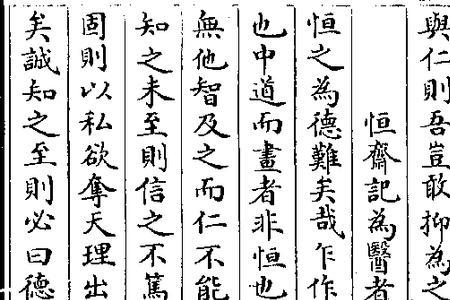 與仁則吾豈敢抑為之
恒齋記為醫者
恒之為德難矣哉乍作
也中道而畫者非恒也
無他智及之而仁不能
知之未至則信之不篤
固則以私欲奪天理出
矣誠知之至則必曰德